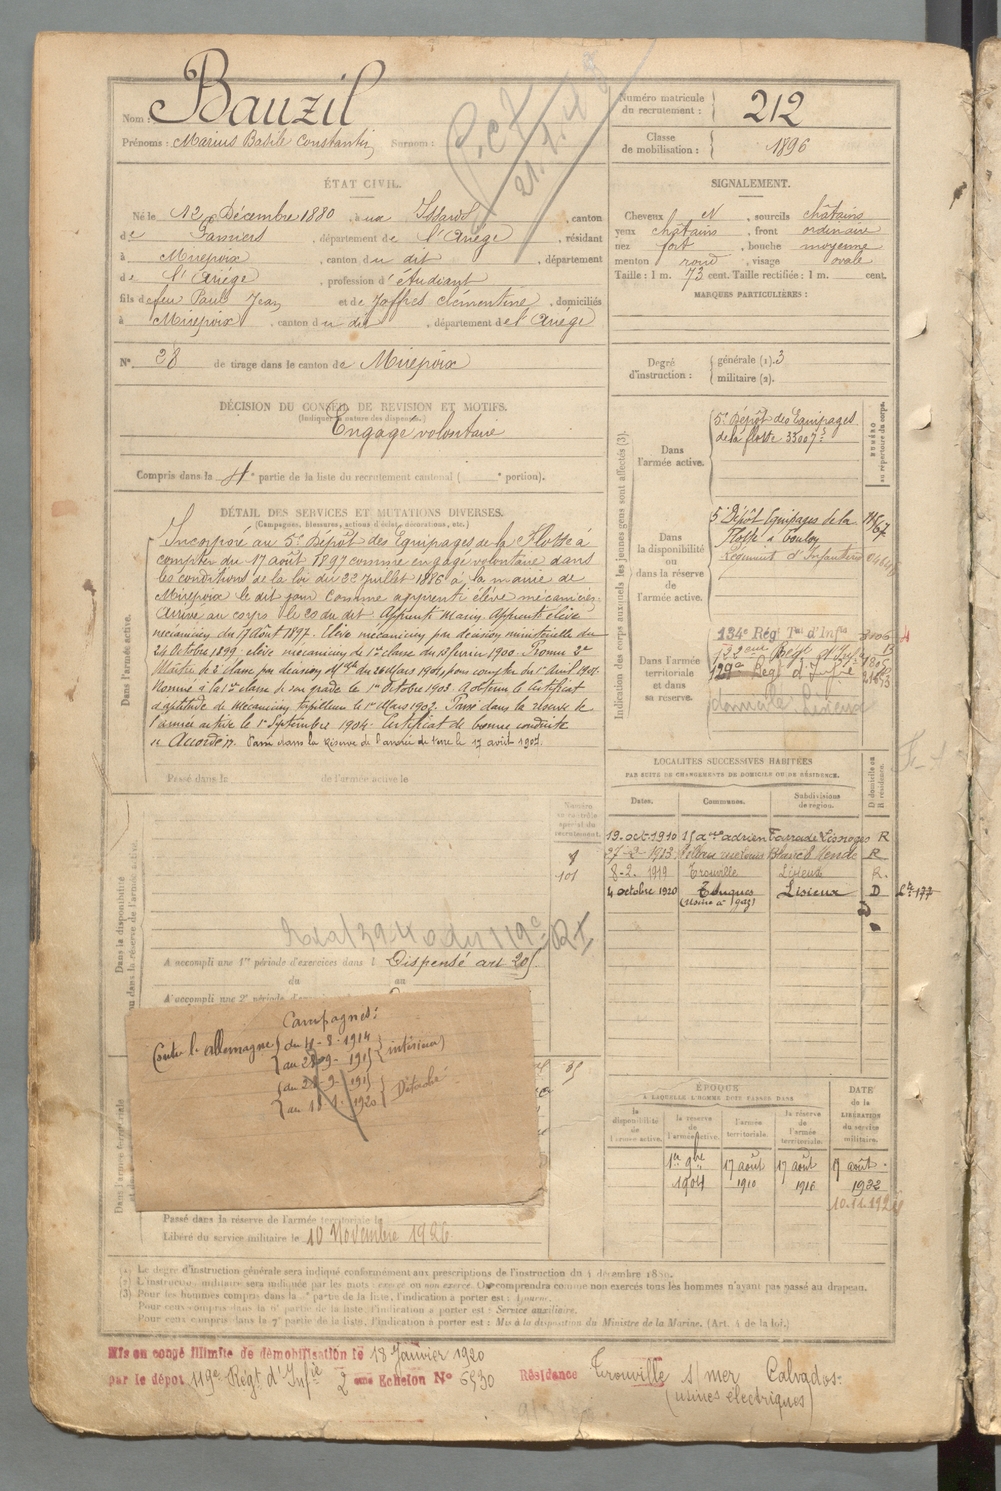 Nom : Bauzil
Prénoms : Marius Basile Constantin Surnom :
Numéro matricule du recrutement : 212
Classe de mobilisation : 1896
ÉTAT CIVIL.
Né le 12 Décembre 1880, à Issards, canton
de Pamiers, département de l'Ariège, résidant
à Mirepoix, canton du dit, département
de l'Ariège, profession d'étudiant
fils de feu Paul Jean et de Joffres Clémentine, domiciliés
à Mirepoix, canton du dit, département de l'Ariège
N° 28 de tirage dans le canton de Mirepoix
SIGNALEMENT.
Cheveux N, sourcils châtains
yeux châtains, front ordinaire
nez fort, bouche moyenne
menton rond, visage ovale
Taille : 1 m. 73 cent. Taille rectifiée : 1 m. cent.
MARQUES PARTICULIÈRES :
Degré d'instruction : générale (1). 3
militaire (2).
DÉCISION DU CONSEIL DE REVISION ET MOTIFS.
(Indiquer la nature des dispenses.)
Engagé volontaire
Compris dans la 4e partie de la liste du recrutement cantonal ( e portion).
DÉTAIL DES SERVICES ET MUTATIONS DIVERSES.
(Campagnes, blessures, actions d'éclat, décorations, etc.)
Dans l'armée active.
Incorporé au 5e Dépôt des Equipages de la Flotte à
compter du 17 août 1897 comme engagé volontaire dans
les conditions de la loi du 22 juillet 1886 à la mairie de
Mirepoix le dit jour comme apprenti élève mécanicien.
Arrivé au corps le 20 du dit. Apprenti marin. Apprenti élève
mécanicien du 17 août 1897. Elève mécanicien par décision ministérielle du
24 Octobre 1899. élève mécanicien de 1re classe du 15 février 1900. Promu 2e
Maître de 2e classe par décision du 20 Mars 1901, pour compter du 1er Avril 1901.
Nommé à la 1re classe de son grade le 1er Octobre 1903. A obtenu le Certificat
d'aptitude de Mécanicien torpilleur le 1er Mars 1902. Passé dans la réserve de
l'armée active le 1er Septembre 1904. Certificat de bonne conduite
"Accordé". Passé dans la Réserve de l'armée de terre le 17 août 1907.
Passé dans la de l'armée active le
Indication des corps auxquels les jeunes gens sont affectés (3).
NUMÉRO au répertoire du corps.
Dans l'armée active.
5e Dépôt des Equipages
de la flotte 33007
Dans la disponibilité ou dans la réserve de l'armée active.
5e Dépôt Equipages de la
Flotte à Toulon
Régiment d'Infanterie
Dans l'armée territoriale et dans sa réserve.
134e Régt Tal d'Infie
129e Régt d'Infie
LOCALITÉS SUCCESSIVES HABITÉES
PAR SUITE DE CHANGEMENTS DE DOMICILE OU DE RÉSIDENCE.
Dates. Communes. Subdivisions de région. D domicile ou R résidence.
19 oct. 1910 R
1913 R
8-2. 1919 Trouville Lisieux R.
4 octobre 1920 Touques (Usine à gaz) Lisieux D
Numéro au contrôle spécial du recrutement.
101
Dans la disponibilité ou dans la réserve de l'armée active.
A accompli une 1re période d'exercices dans l Dispensé art 205
du au
A accompli une 2e période
Campagnes :
Contre l'Allemagne du 4-8-1914
au -9-1915 intérieur
du -9-1915
au 1920 Détaché
Dans l'armée territoriale
Passé dans la réserve de l'armée territoriale le
Libéré du service militaire le 10 Novembre 1926
ÉPOQUE
A LAQUELLE L'HOMME DOIT PASSER DANS
la disponibilité de l'armée active. la réserve de l'armée active. l'armée territoriale. la réserve de l'armée territoriale. DATE de la LIBÉRATION du service militaire.
1er 9bre 1904 17 août 1910 17 août 1916 17 août 1922
10.11.1926
(1) Le degré d'instruction générale sera indiqué conformément aux prescriptions de l'instruction du 4 décembre 1889.
(2) L'instruction militaire sera indiquée par les mots : exercé ou non exercé. On comprendra comme non exercés tous les hommes n'ayant pas passé au drapeau.
(3) Pour les hommes compris dans la partie de la liste, l'indication à porter est : Ajourné.
Pour ceux compris dans la partie de la liste, l'indication à porter est : Service auxiliaire.
Pour ceux compris dans la 7e partie de la liste, l'indication à porter est : Mis à la disposition du Ministre de la Marine. (Art. 4 de la loi.)
Mis en congé illimité de démobilisation le 18 Janvier 1920
par le dépôt 119e Régt d'Infie 2eme Echelon N° 6530 Résidence Trouville s/ mer Calvados
(usines électriques)